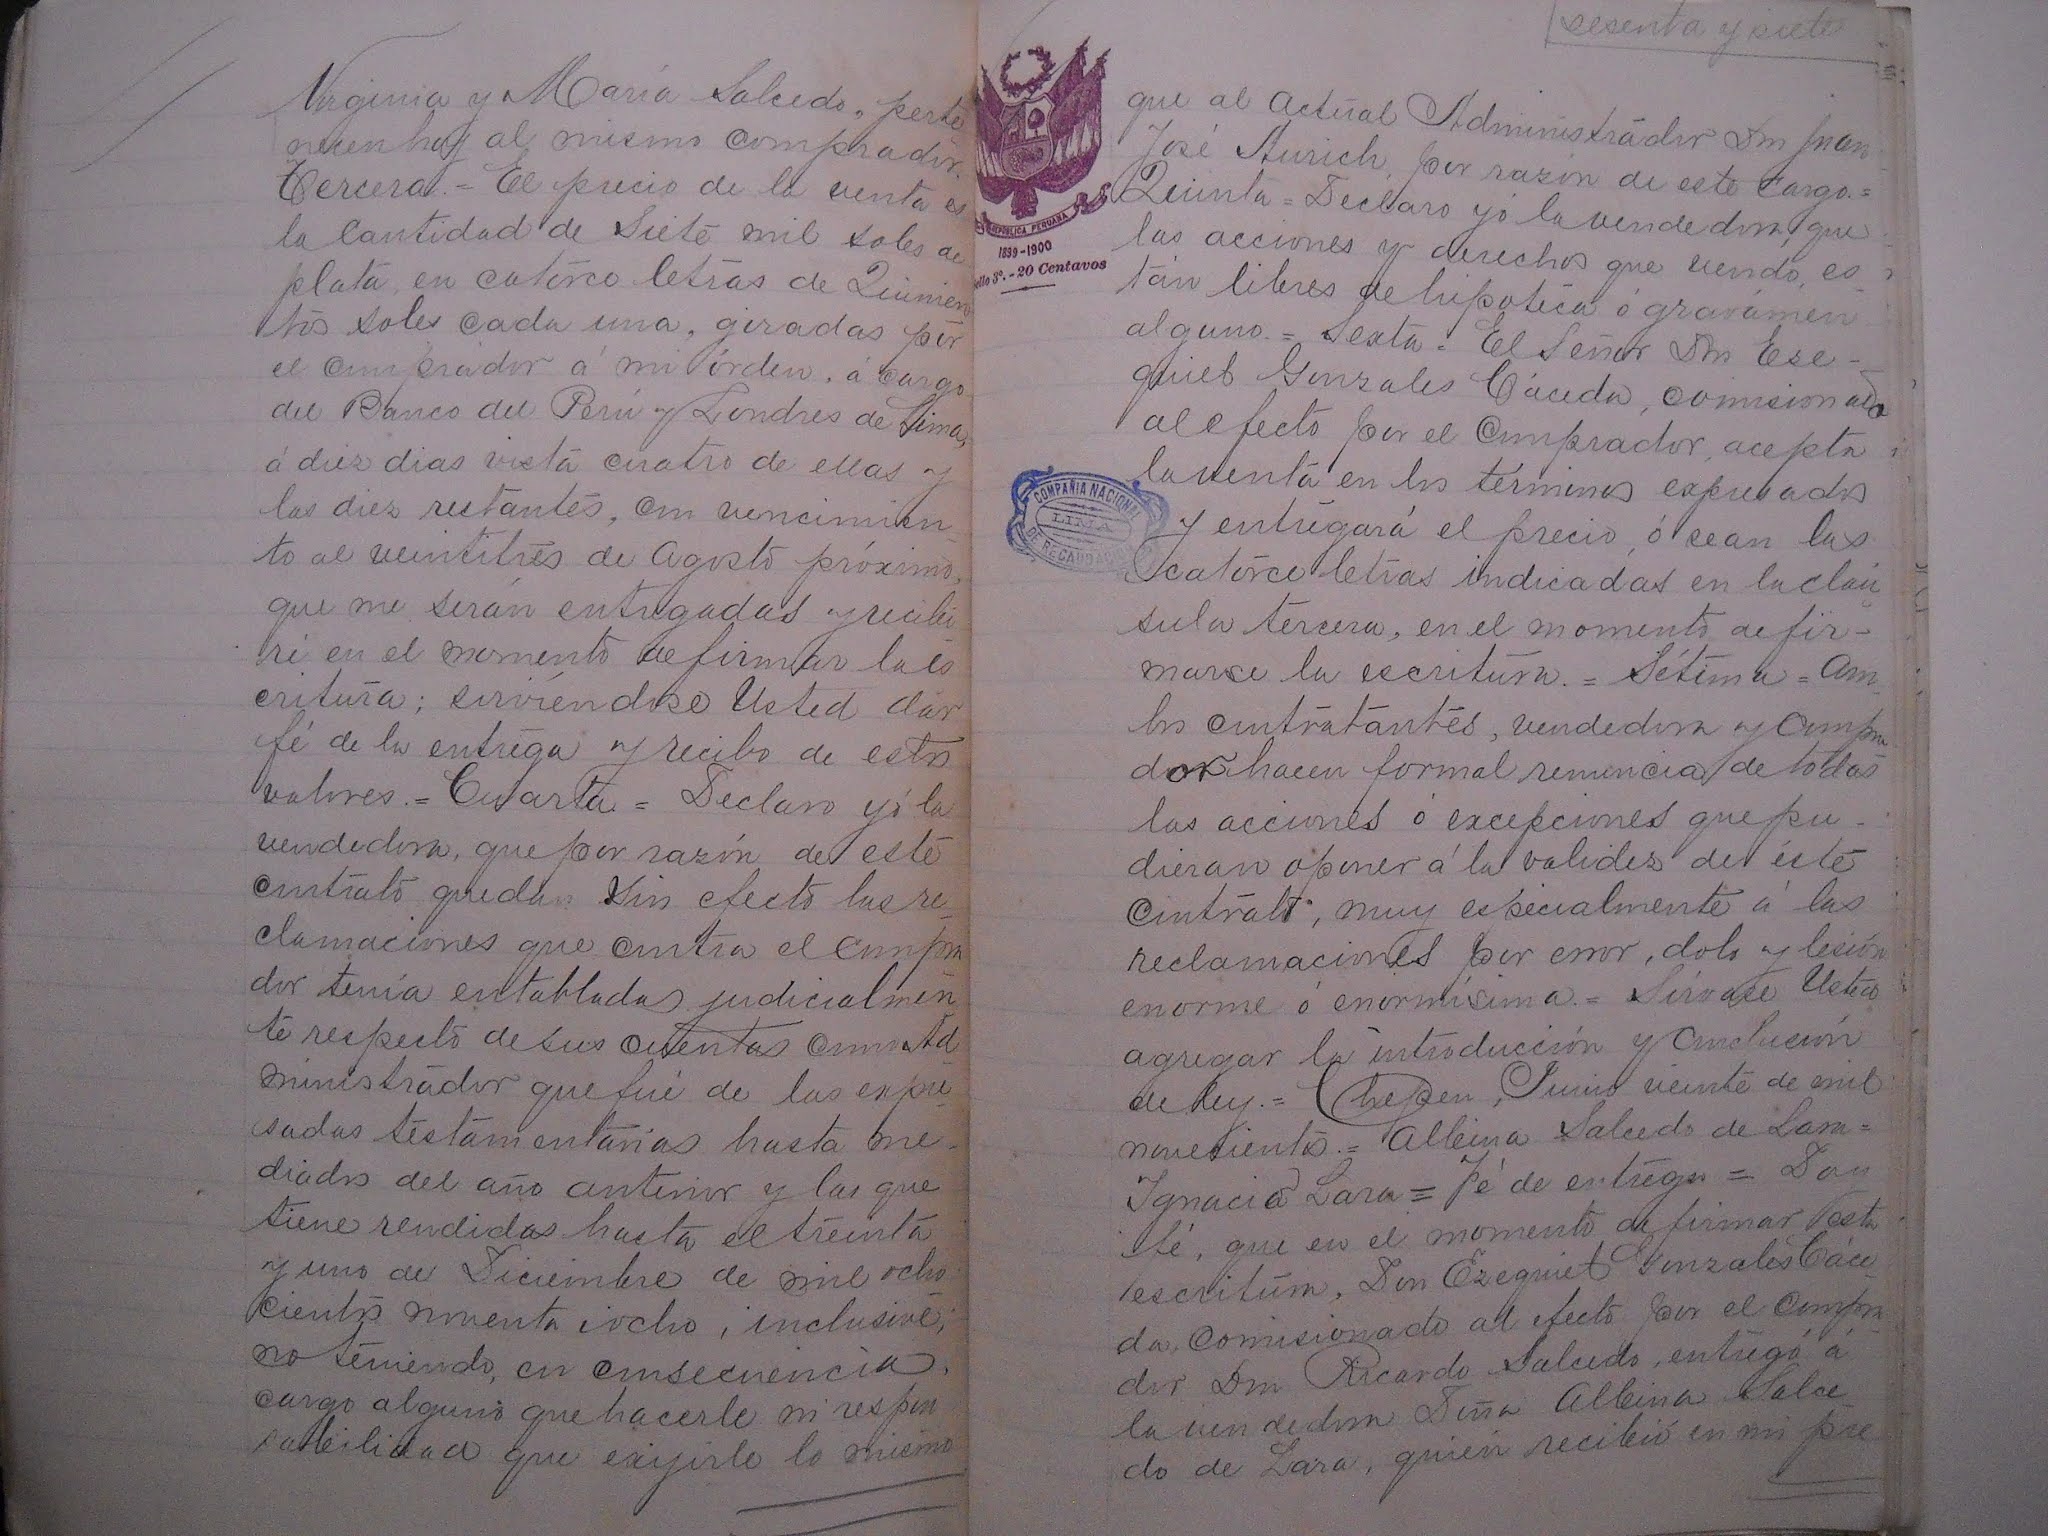 Virginia y María Salcedo, perte
necen hoy al mismo comprador.
Tercera.= El precio de la venta es
la Cantidad de Siete mil soles de
plata, en catorce letras de Quinien
tos soles cada una, giradas por
el comprador á mi órden, á cargo
del Banco del Perú y Londres de Lima,
á diez dias vista cuatro de ellas y
las diez restantes, con vencimien-
to al veintitres de Agosto próximo,
que me serán entregadas y recibi
ré en el momento de firmar la es
critura; sirviéndose Usted dar
fé de la entrega y recibo de estos
valores.= Cuarta = Declaro yó la
vendedora, que por razón de este
contrato quedan sin efecto las re-
clamaciones que contra el compra
dor tenía entabladas judicialmen-
te respecto de sus cuentas como Ad
ministrador que fué de las expre
sadas testamentarias hasta me-
diados del año anterior y las que
tiene rendidas hasta el treinta
y uno de Diciembre de mil ocho
cientos noventa i ocho, inclusive;
no teniendo, en consecuencia,
cargo alguno que hacerle ni respon
sabilidad que exijirle lo mismo
sesenta y siete
REPÚBLICA PERUANA
1899-1900
Sello 3º.-20 Centavos
que al actual Administrador Don Juan
José Aurich, por razón de este cargo.=
Quinta = Declaro yó la vendedora, que
las acciones y derechos que vendo, es-
tán libres de hipoteca ó gravámen
alguno.= Sexta = El Señor Don Eze-
quiel Gonzales Cáceda, comisionado
al efecto por el comprador, acepta
la venta en los términos expresados
y entregará el precio, ó sean las
catorce letras indicadas en la cláu
sula tercera, en el momento de fir-
marse la escritura.= Sétima = Am-
bos contratantes, vendedora y compra
dor hacen formal renuncia de todas
las acciones ó excepciones que pu-
dieran oponer á la validez de éste
contrato, muy especialmente á las
reclamaciones por error, dolo y lesión
enorme ó enormísima.= Sírvase Usted
agregar la introducción y conclusión
de ley.= Chepen, Junio veinte de mil
novecientos.= Albina Salcedo de Lara=
Ignacio Lara = Fé de entrega = Doy
fé, que en el momento de firmar esta
escritura, Don Ezequiel Gonzales Cáce-
da, comisionado al efecto por el compra-
dor Don Ricardo Salcedo, entregó á
la vendedora Doña Albina Salce
do de Lara, quien recibió en mi pre
COMPAÑIA NACIONAL
LIMA
DE RECAUDACION